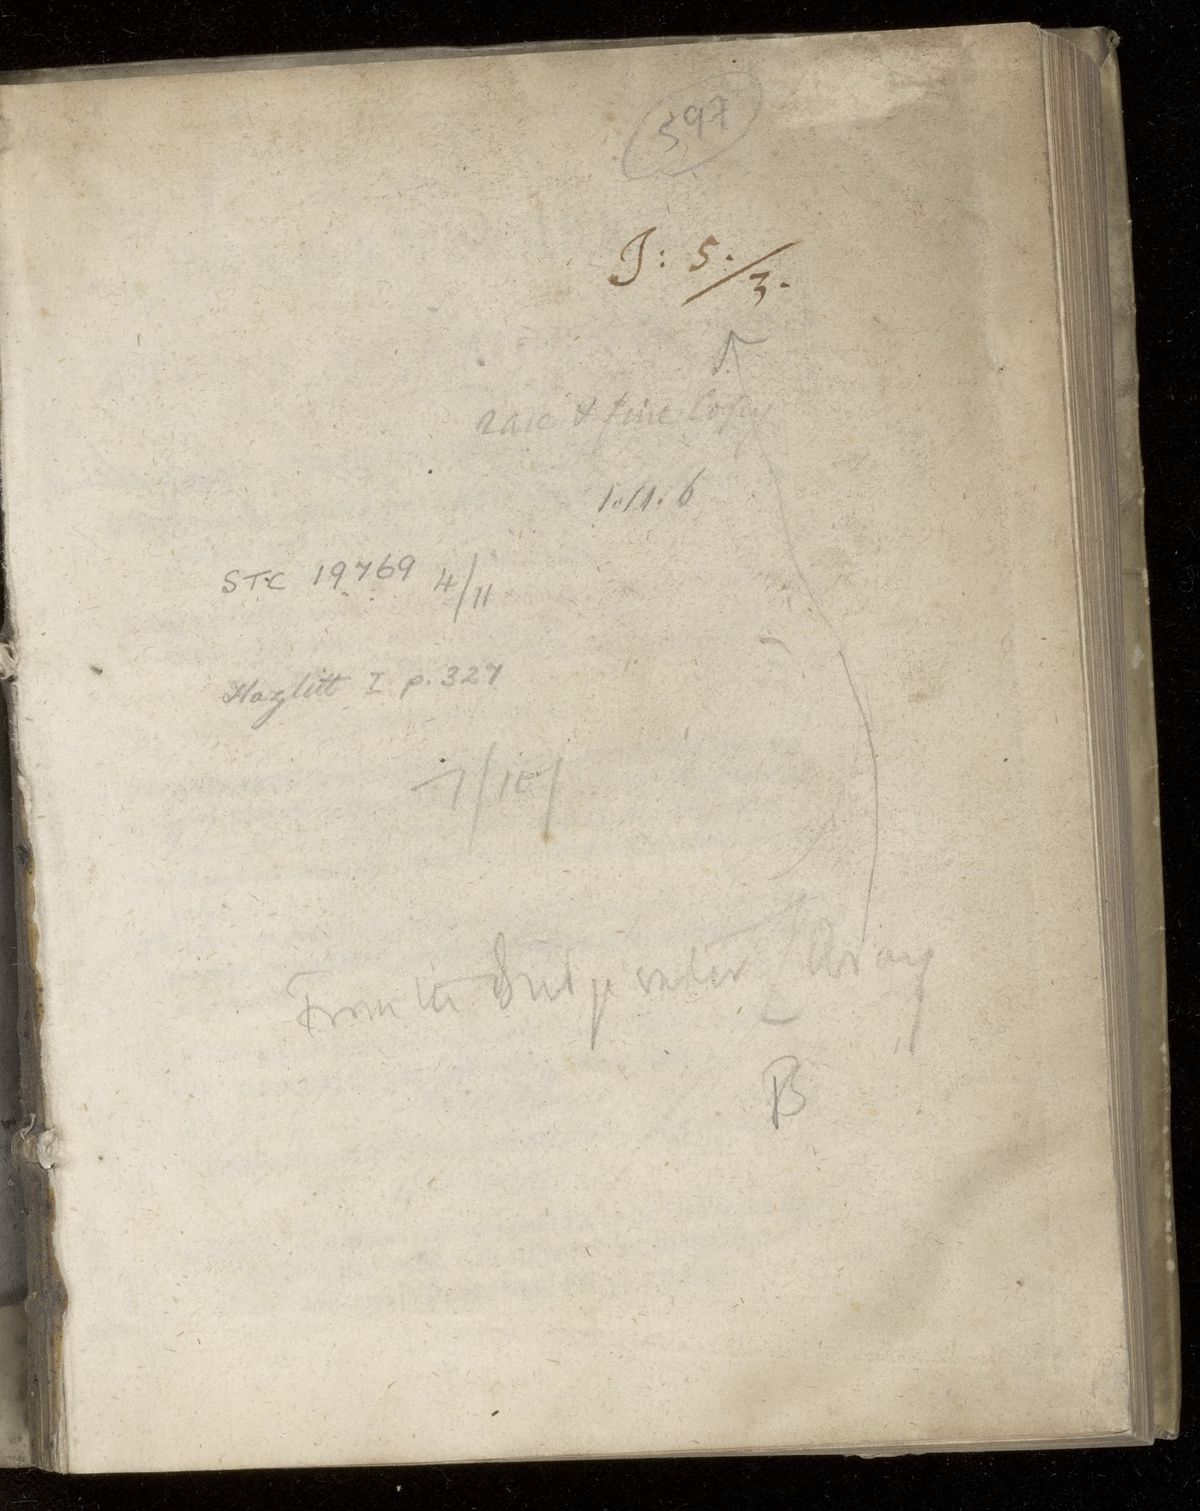 597
J: 5./3.
rare & fine Copy
1.11.6
STC 19769 4/11
Hazlitt I p. 327
7/10/
From the Bridgewater Library
B